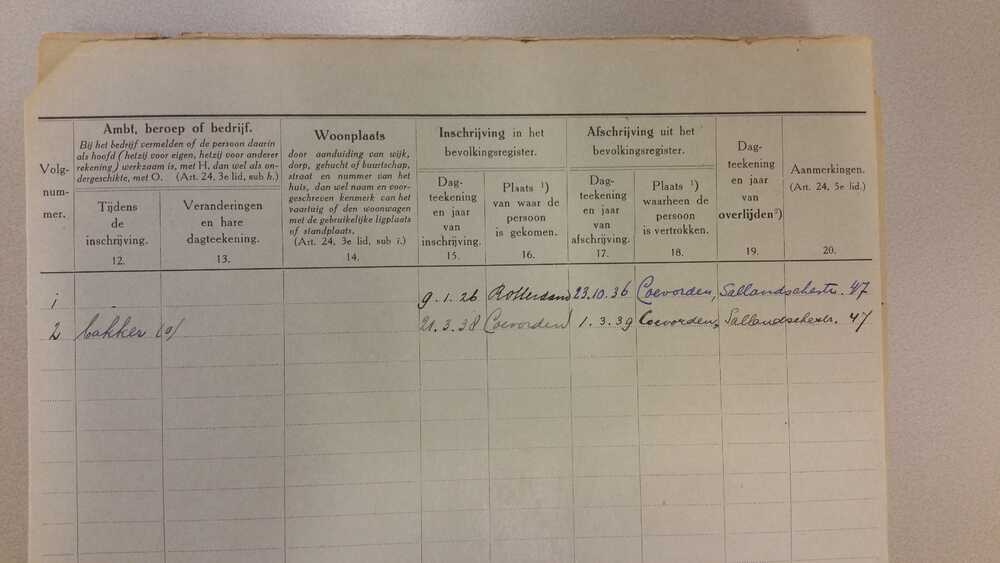 Volg-
num-
mer.
Ambt, beroep of bedrijf.
Bij het bedrijf vermelden of de persoon daarin
als hoofd (hetzij voor eigen, hetzij voor anderer
rekening) werkzaam is, met H, dan wel als on-
dergeschikte, met O. (Art. 24, 3e lid, sub h.)
Tijdens
de
inschrijving.
12.
Veranderingen
en hare
dagteekening.
13.
Woonplaats
door aanduiding van wijk,
dorp, gehucht of buurtschap,
straat en nummer van het
huis, dan wel naam en voor-
geschreven kenmerk van het
vaartuig of den woonwagen
met de gebruikelijke ligplaats
of standplaats.
(Art. 24, 3e lid, sub i.)
14.
Inschrijving in het
bevolkingsregister.
Dag-
teekening
en jaar
van
inschrijving.
15.
Plaats 1)
van waar de
persoon
is gekomen.
16.
Afschrijving uit het
bevolkingsregister.
Dag-
teekening
en jaar
van
afschrijving.
17.
Plaats 1)
waarheen de
persoon
is vertrokken.
18.
Dag-
teekening
en jaar
van
overlijden2)
19.
Aanmerkingen.
(Art. 24, 5e lid.)
20.
1 - 9.1.26 Rotterdam 23.10.36 Coevorden, Sallandschestr. 47
2 bakker (o) 21.3.38 Coevorden 1.3.39 Coevorden, Sallandschestr. 47